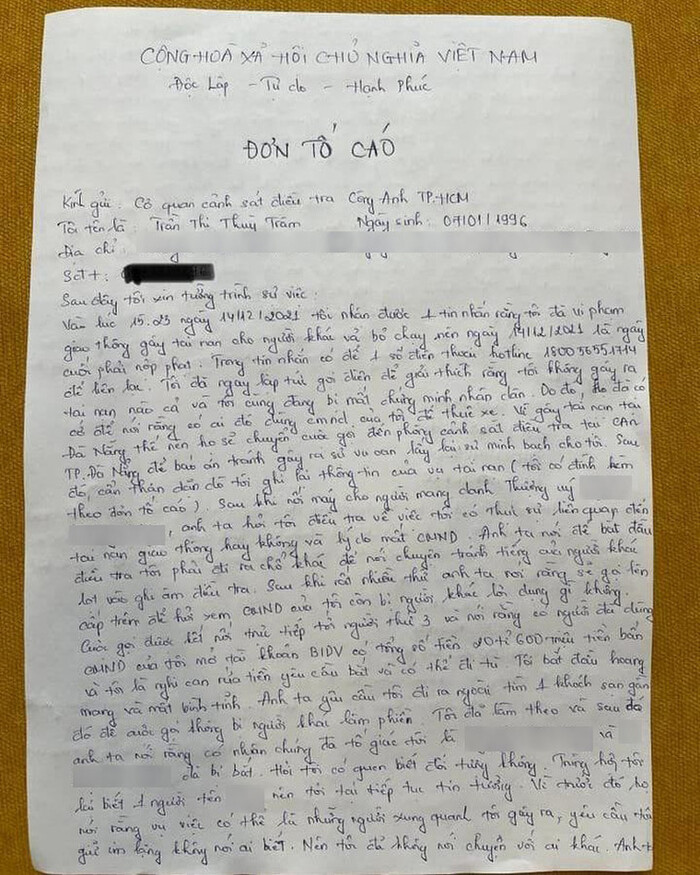 CỘNG HOÀ XÃ HỘI CHỦ NGHĨA VIỆT NAM
Độc Lập - Tự do - Hạnh Phúc
ĐƠN TỐ CÁO
Kính gửi: Cơ quan cảnh sát điều tra Công Anh TP.HCM
Tôi tên là: Trần Thị Thuỳ Trâm Ngày sinh: 07/01/1996
Địa chỉ:
Sđt:
Sau đây tôi xin tường trình sự việc:
Vào lúc 15.23 ngày 14/12/2021 tôi nhận được 1 tin nhắn rằng tôi đã vi phạm
giao thông gây tai nạn cho người khác và bỏ chạy nên ngày 14/12/2021 là ngày
cuối phải nộp phạt. Trong tin nhắn có để 1 số điện thoại hotline
để liên lạc. Tôi đã ngay lập tức gọi điện để giải thích rằng tôi không gây ra
tai nạn nào cả và tôi cũng đang bị mất chứng minh nhân dân. Do đó, họ đã có
cớ để nói rằng có ai đó dùng cmnd của tôi để thuê xe. Vì gây tai nạn tại
Đà Nẵng thế nên họ sẽ chuyển cuộc gọi đến phòng cảnh sát điều tra tại CAN
TP.Đà Nẵng để báo án tránh gây ra sự vu oan, lấy lại sự minh bạch cho tôi. Sau
đó, cẩn thận dặn dò tôi ghi lại thông tin của vụ tai nạn (tôi có đính kèm
theo đơn tố cáo). Sau khi nối máy cho người mang danh Thượng uý
, anh ta hỏi tôi điều tra về việc tôi có thực sự liên quan đến
tai nạn giao thông hay không và lý do mất CMND. Anh ta nói để bắt đầu
điều tra tôi phải đi ra chỗ khác để nói chuyện tránh tiếng của người khác
lọt vào ghi âm điều tra. Sau khi rất nhiều thứ anh ta nói rằng sẽ gọi lên
cấp trên để hỏi xem CMND của tôi còn bị người khác lợi dụng gì không.
Cuộc gọi được kết nối trực tiếp tới người thứ 3 và nói rằng có người đã dùng
CMND của tôi mở tài khoản BIDV có tổng số tiền 20 tỉ 600 triệu tiền bẩn
và tôi là nghi can rửa tiền yêu cầu bắt và có thể đi tù. Tôi bắt đầu hoang
mang và mất bình tĩnh. Anh ta yêu cầu tôi đi ra ngoài tìm 1 khách sạn gần
đó để cuộc gọi không bị người khác làm phiền. Tôi đã làm theo và sau đó
anh ta nói rằng có nhân chứng đã tố giác tôi là và
đã bị bắt. Hỏi tôi có quen biết đối tượng không. Trùng hợp tôi
lại biết 1 người tên nên tôi lại tiếp tục tin tưởng. Vì trước đó họ
nói rằng vụ việc có thể là những người xung quanh tôi gây ra, yêu cầu tôi
giữ im lặng không nói ai biết. Nên tôi đã không nói chuyện với ai khác. Anh